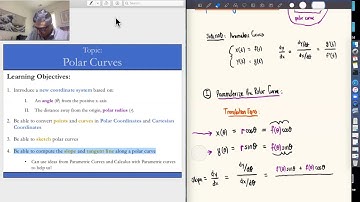 Topic:
Polar Curves
Learning Objectives:
1. Introduce a new coordinate system based on:
I. An angle (θ) from the positive x-axis
II. The distance away from the origin, polar radius (r).
2. Be able to convert points and curves in Polar Coordinates and Cartesian
Coordinates
3. Be able to sketch polar curves
4. Be able to compute the slope and tangent line along a polar curve
• Can use ideas from Parametric Curves and Calculus with Parametric curves
to help us!
polar curve
Parametric Curves
{ x(t) = f(t)
{ y(t) = g(t)
dy/dx = (dy/dt)/(dx/dt) = g'(t)/f'(t)
Parameterize the Polar Curve:
Translation Eqns
x(θ) = r cosθ = f(θ) cosθ
y(θ) = r sinθ = f(θ) sinθ
slope = dy/dx = (dy/dθ)/(dx/dθ) = f'(θ) sinθ + f(θ) cosθ